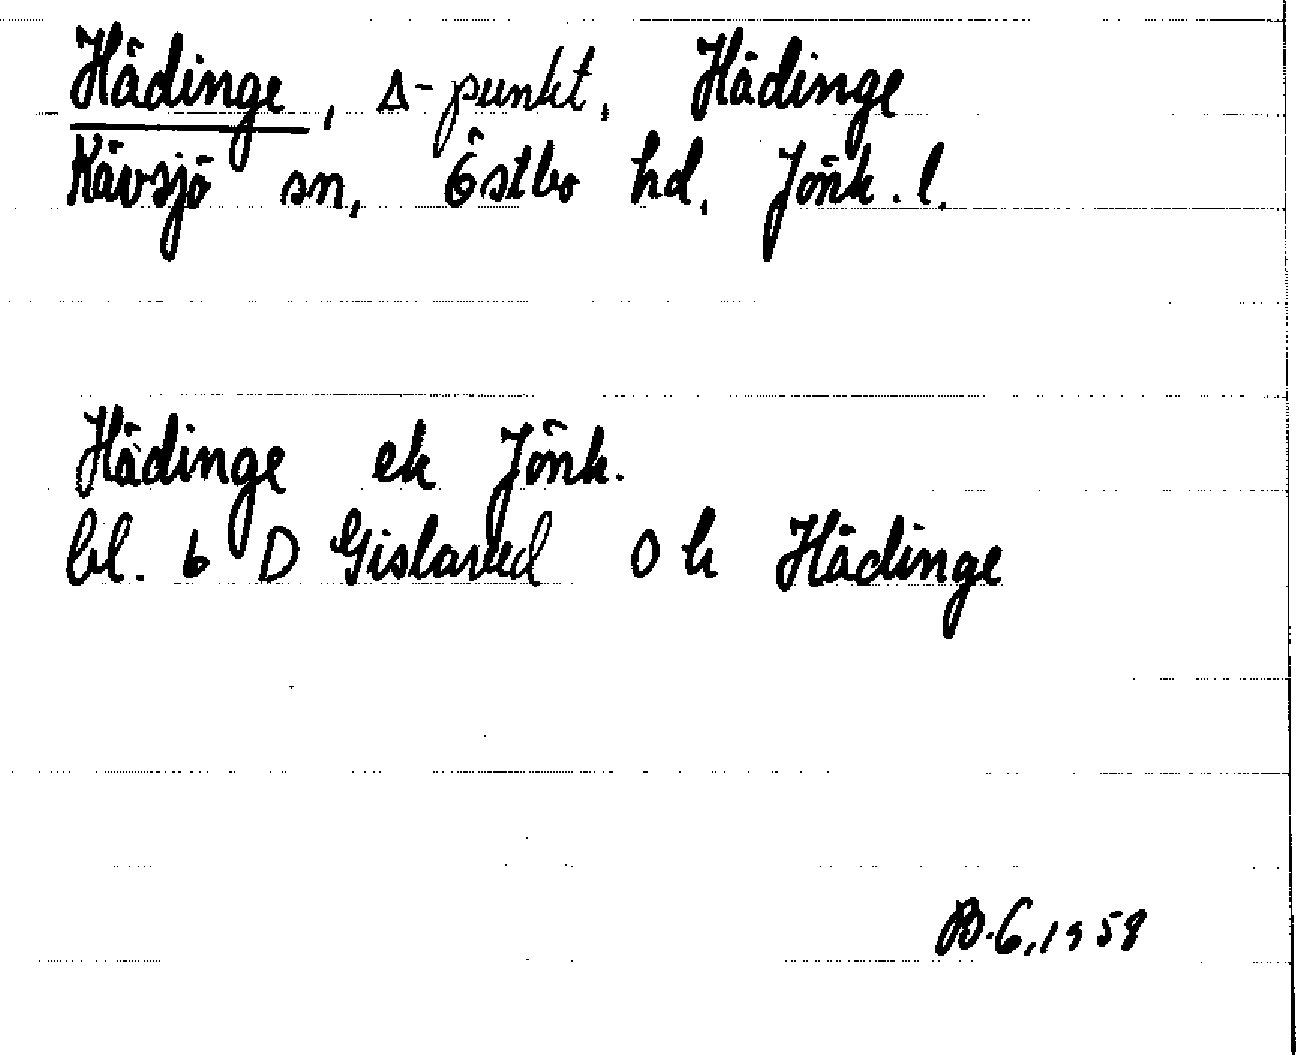 Hådinge, Δ-punkt, Hådinge
Kävsjö sn, Östbo hd, Jönk. l.
Hådinge ek Jönk.
bl. 6 D Gislaved 0 h Hådinge
B.G. 1958